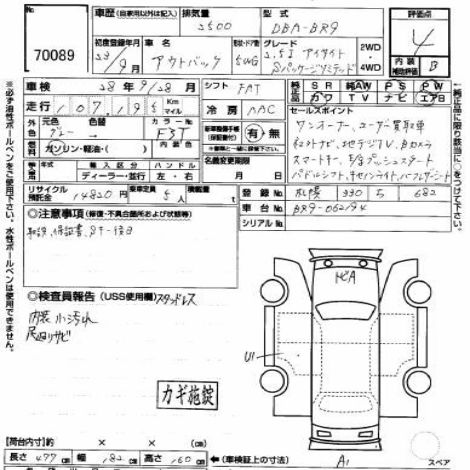 70089
車歴 (自家用以外は記入) 排気量 2500 型式 DBA-BR9
初度登録年月 23/9月 車名 アウトバック 型・ドア数 5WG グレード 2.5i アイサイト Sパッケージリミテッド 2WD・4WD
評価点 4
内装補助評価 B
車検 23年9/28月 シフト FAT
走行 Km マイル 冷房 AAC
純正 SR 純AW PS PW
純正 カワ TV ナビ エアB
外装 元色 グレー 色替 カラーNo. F3T 新車整備手帳(保証書) 有・無
燃料 ガソリン・軽油・( ) 内装色
輸入車 輸入区分 ディーラー・並行 ハンドル 左・右
名義変更期限 月 日
リサイクル預託金 14820円 乗車定員 5人 積載量 t
セールスポイント
ワンオーナー、ユーザー買取車
スマートキー、プッシュスタート
パドルシフト、キセノンライト
登録No. 札幌 330 ち 682
車台No. BR9-062194
シリアルNo.
◎注意事項 (修復・不具合箇所および状態等)
取説、保証書、
◎検査員報告 (USS使用欄) スタッドレス
内装小汚れ
足廻りサビ
カギ施錠
トビA
U1
A1
【荷台内寸】 × × (cm)
長さ 477cm 幅 182cm 高さ 160cm ←(車検証上の寸法)
スペア
※必ず油性ボールペンをご使用下さい。水性ボールペンは使用できません。